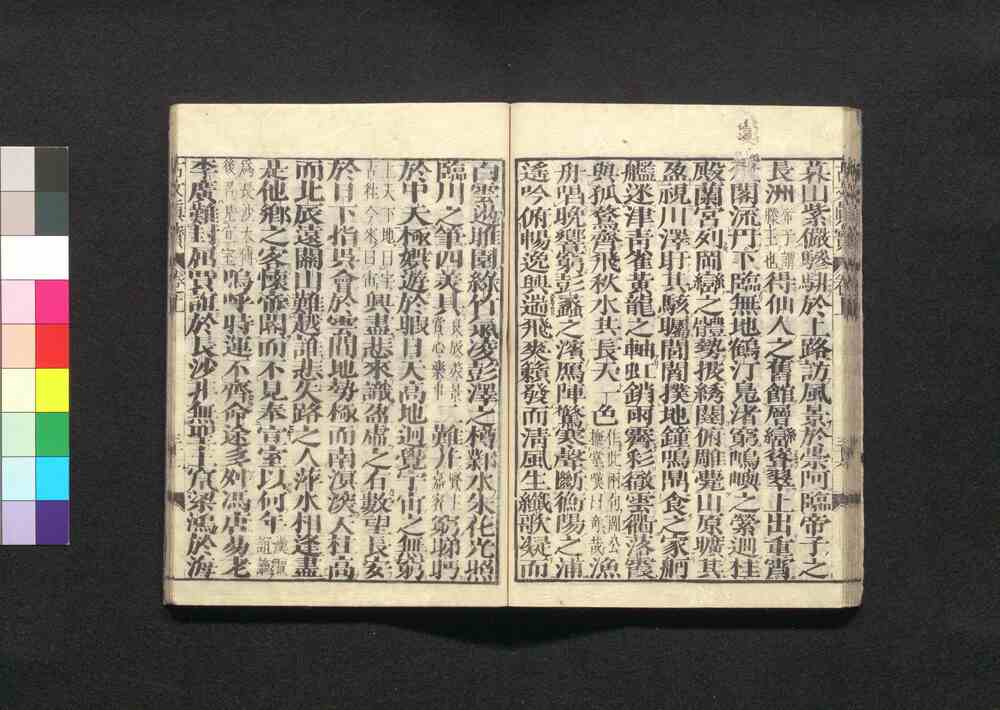 葉山紫儼驂騑於上路訪風景於崇阿臨帝子之
長洲得仙人之舊館層巒聳翠上出重霄
飛閣流丹下臨無地鶴汀鳧渚窮島嶼之縈迴桂
殿蘭宮列岡巒之體勢披繡闥俯雕甍山原曠其
盈視川澤盱其駭矚閭閻撲地鐘鳴鼎食之家舸
艦迷津青雀黃龍之軸虹銷雨霽彩徹雲衢落霞
與孤鶩齊飛秋水共長天一色漁
舟唱晚響窮彭蠡之濱鴈陣驚寒聲斷衡陽之浦
遙吟俯暢逸興遄飛爽籟發而清風生纖歌凝而
白雲遏睢園綠竹氣凌彭澤之樽鄴水朱花光照
臨川之筆四美具良辰美景賞心樂事二難并賢主嘉賓窮睇眄
於中天極娛遊於暇日天高地迥覺宇宙之無窮
上天下地曰宇古往今來曰宙興盡悲來識盈虛之有數望長安
於日下指吳會於雲間地勢極而南溟深天柱高
而北辰遠關山難越誰悲失路之人萍水相逢盡
是他鄉之客懷帝閽而不見奉宣室以何年漢賈誼謫
爲長沙太傅後召見宣室嗚呼時運不齊命途多舛馮唐易老
李廣難封屈賈誼於長沙非無聖主竄梁鴻於海